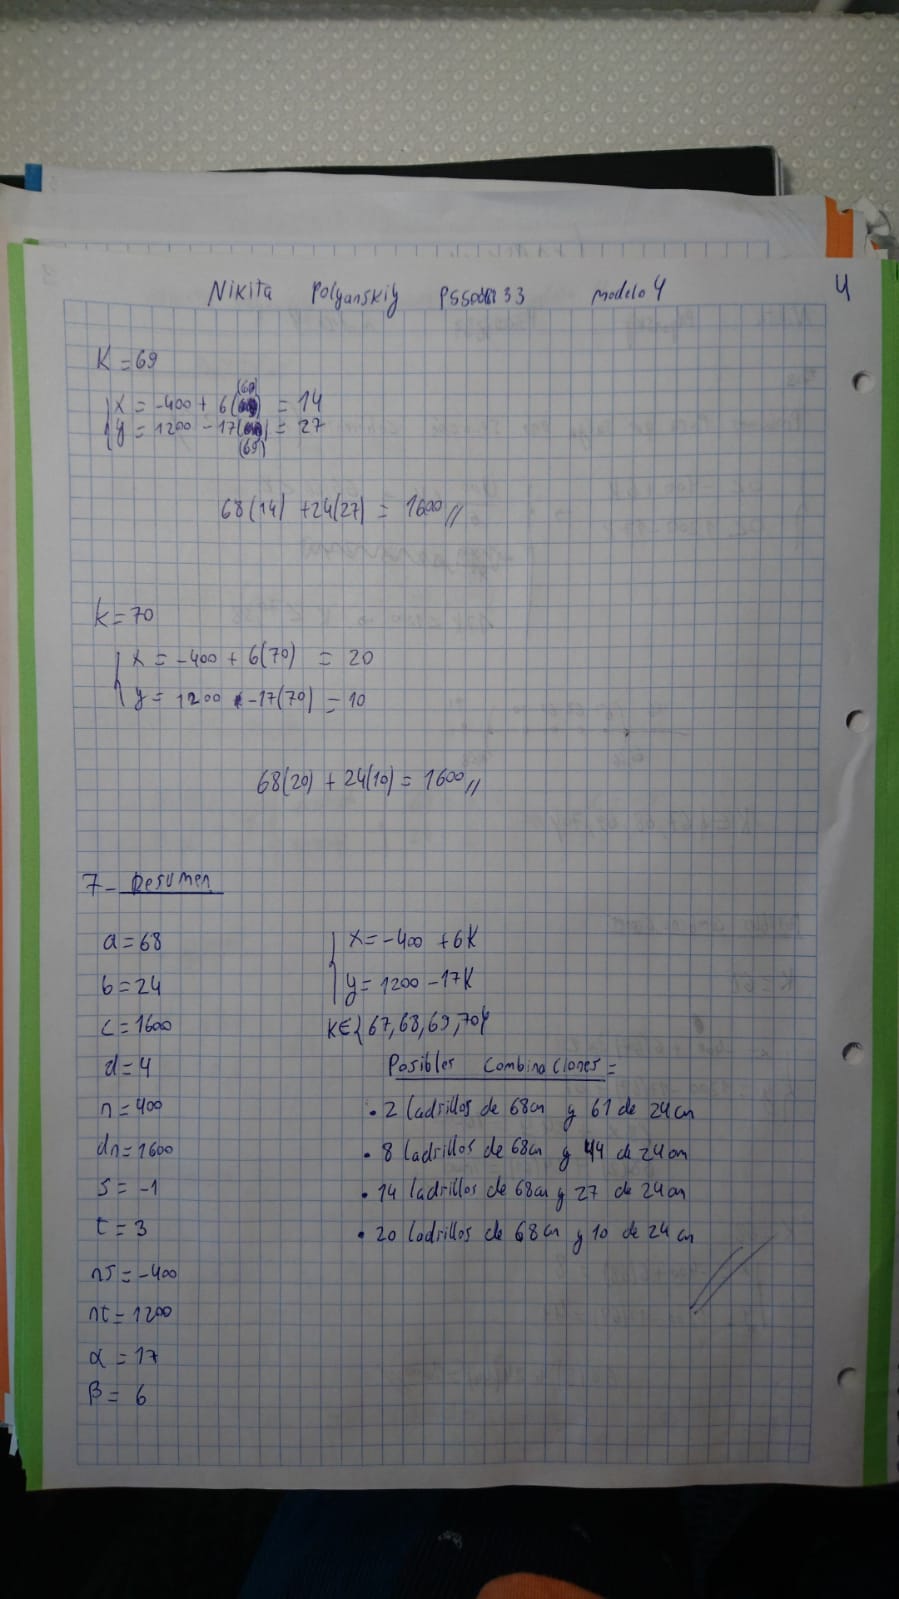 Nikita Polyanskiy modelo 4 4
K=69
x = -400 + 6(69) = 14
y = 1200 - 17(69) = 27
68(14) + 24(27) = 1600 //
K=70
x = -400 + 6(70) = 20
y = 1200 -17(70) = 10
68(20) + 24(10) = 1600 //
7- Resumen
a=68
b=24
c=1600
d=4
n=400
dn=1600
s=-1
t=3
ns=-400
nt=1200
α=17
β=6
x=-400 +6K
y=1200 -17K
K∈{67,68,69,70}
Posibles combinaciones=
• 2 ladrillos de 68cm y 61 de 24cm
• 8 ladrillos de 68cm y 44 de 24cm
• 14 ladrillos de 68cm y 27 de 24cm
• 20 ladrillos de 68cm y 10 de 24cm